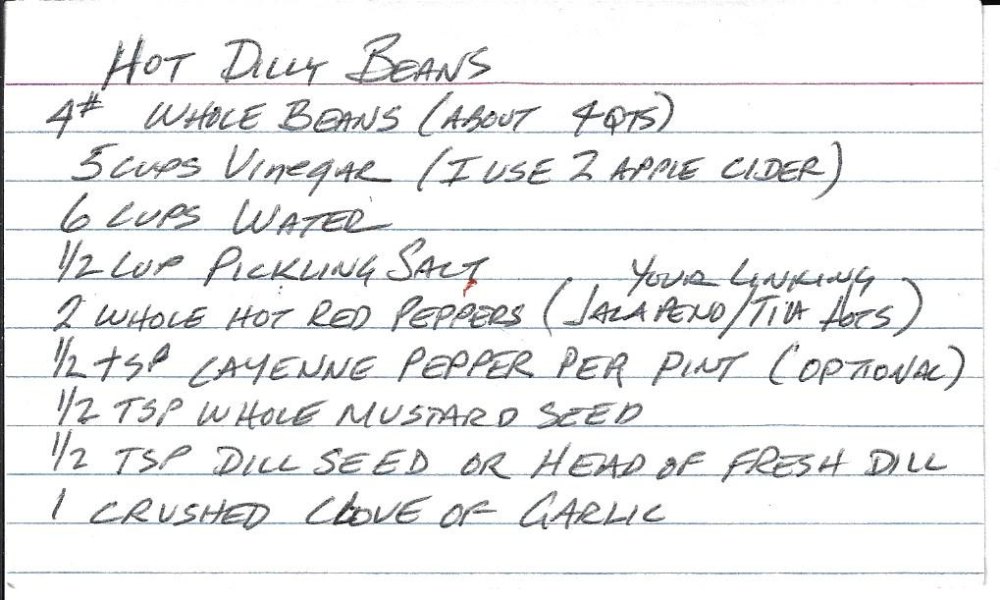 HOT DILLY BEANS
4# WHOLE BEANS (ABOUT 4 QTS)
5 CUPS VINEGAR (I USE 2 APPLE CIDER)
6 CUPS WATER
1/2 CUP PICKLING SALT
YOUR LINKING
2 WHOLE HOT RED PEPPERS (JALAPENO/ HOTS)
1/2 TSP CAYENNE PEPPER PER PINT (OPTIONAL)
1/2 TSP WHOLE MUSTARD SEED
1/2 TSP DILL SEED OR HEAD OF FRESH DILL
1 CRUSHED CLOVE OF GARLIC